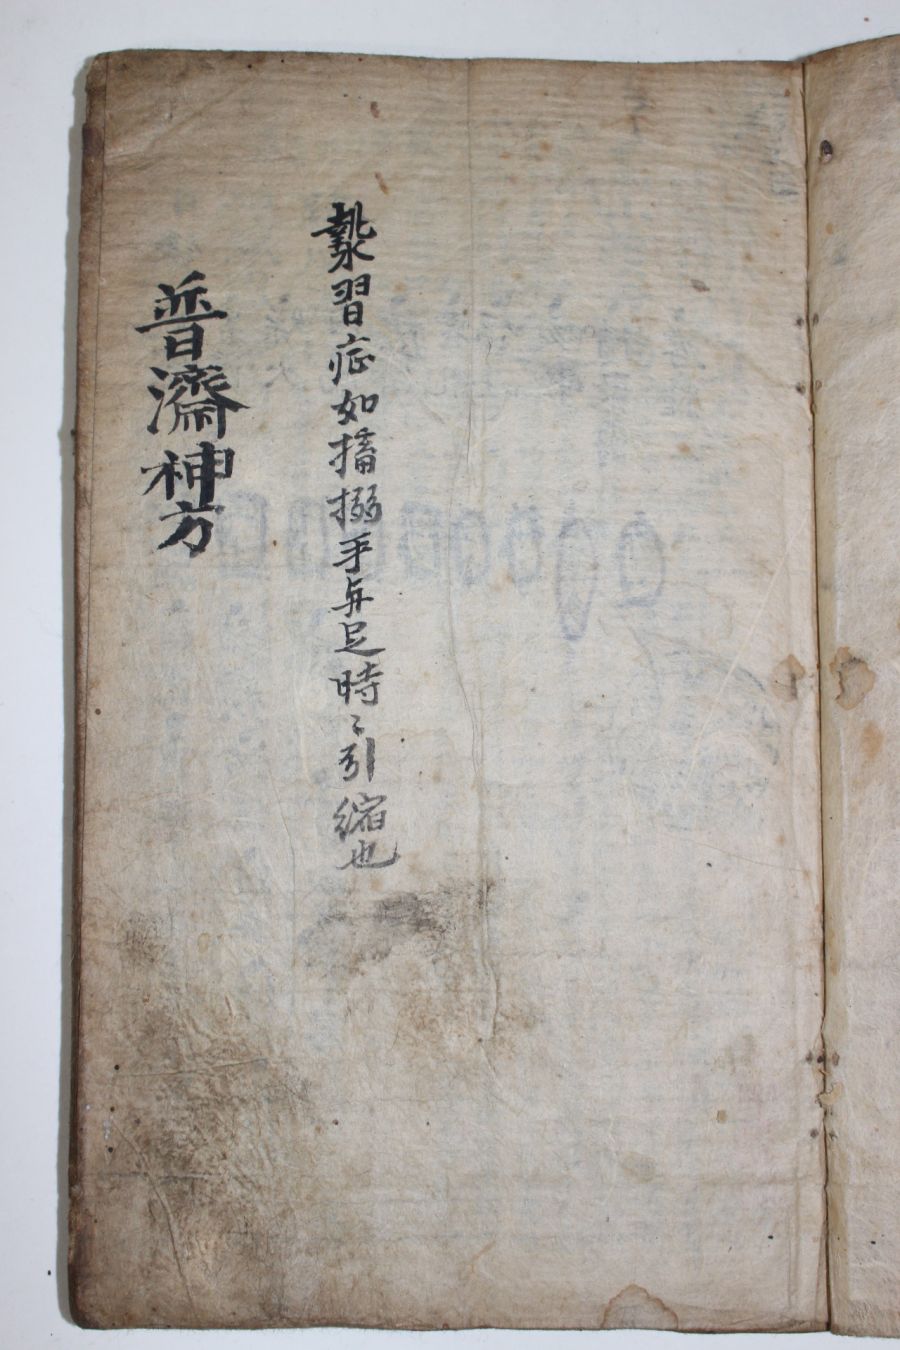 漐習症如搐搦手与足時〻引縮也
普濟神方